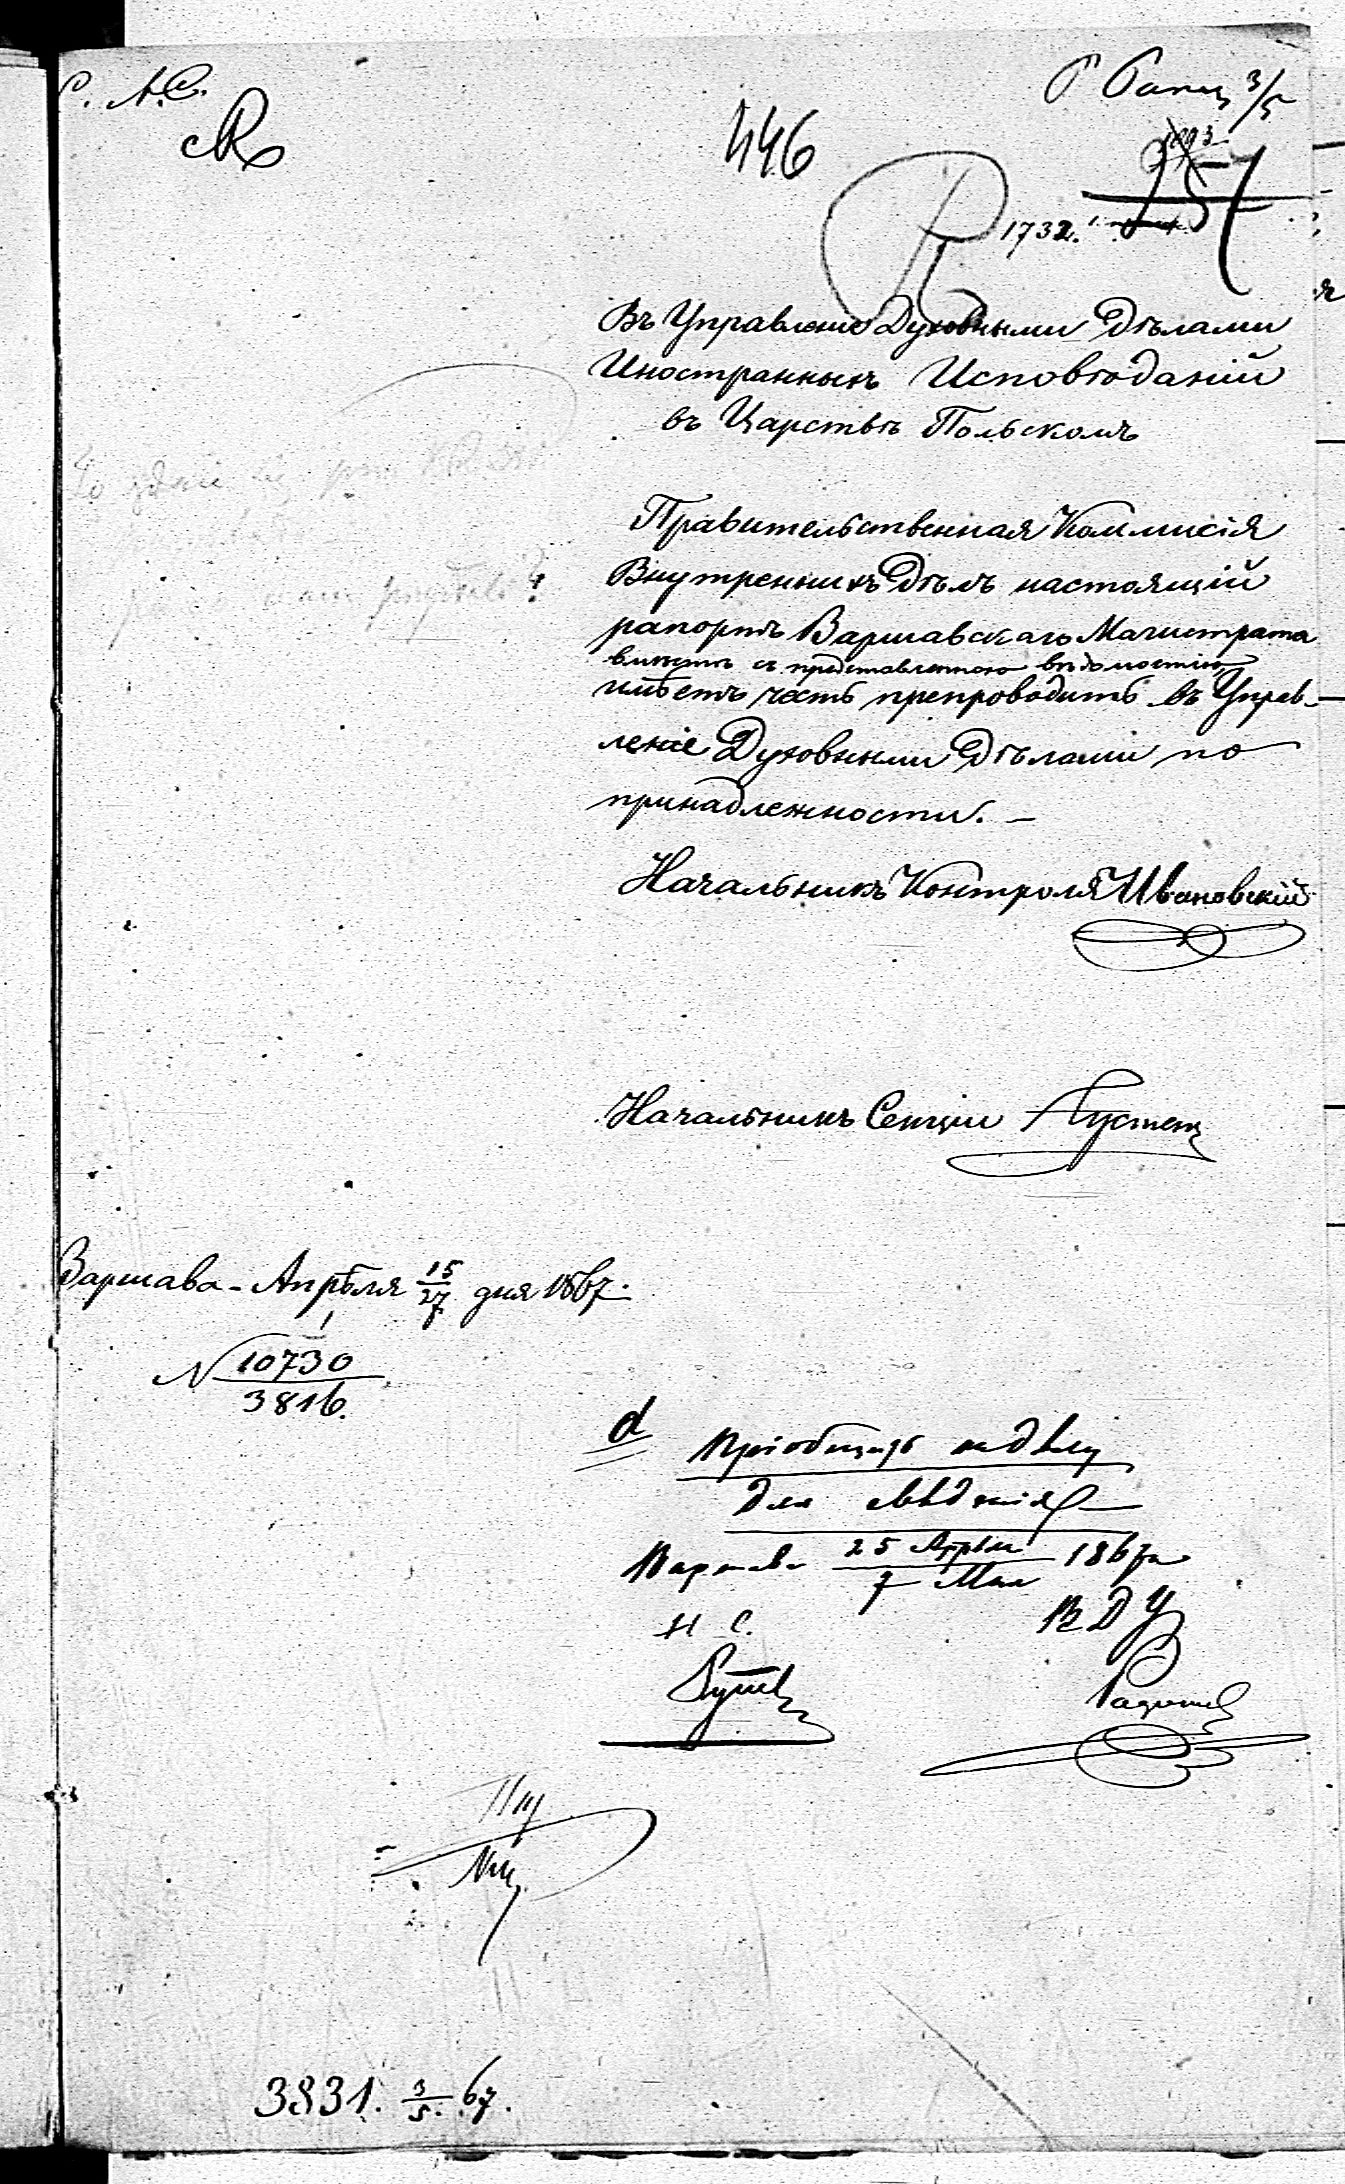 С. А. С.
446
3/5
257
1732.
Въ Управленіе Духовными Дѣлами
Иностранныхъ Исповѣданій
въ Царствѣ Польскомъ
Правительственная Коммисія
Внутреннихъ Дѣлъ настоящій
рапортъ Варшавскаго Магистрата
вмѣстѣ съ представленною вѣдомостію
имѣетъ честь препроводить въ Управ-
леніе Духовными Дѣлами по
принадлежности. —
Начальникъ Контроля Ивановскій
Начальникъ Секціи
Варшава - Апрѣля 15/27 дня 1867.
N 10730/3816.
d
Пріобщить къ дѣлу
для свѣдѣнія
Варшава 25 Апрѣля/7 Мая 1867
Н С. В Д У
3831. 3/5. 67.